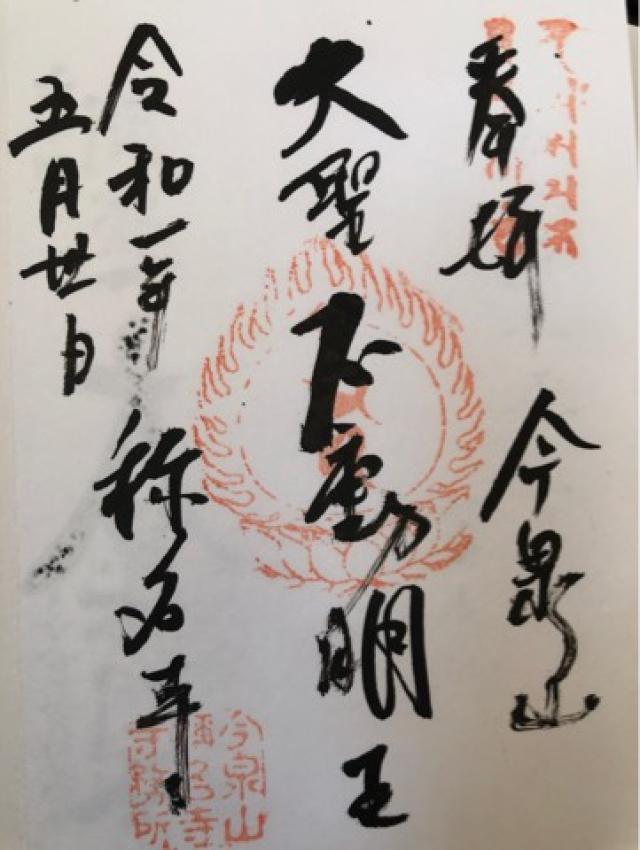 奉拝
今泉山
大聖不動明王
令和一年
五月廿日
称名寺
今泉山
称名寺
寺務所